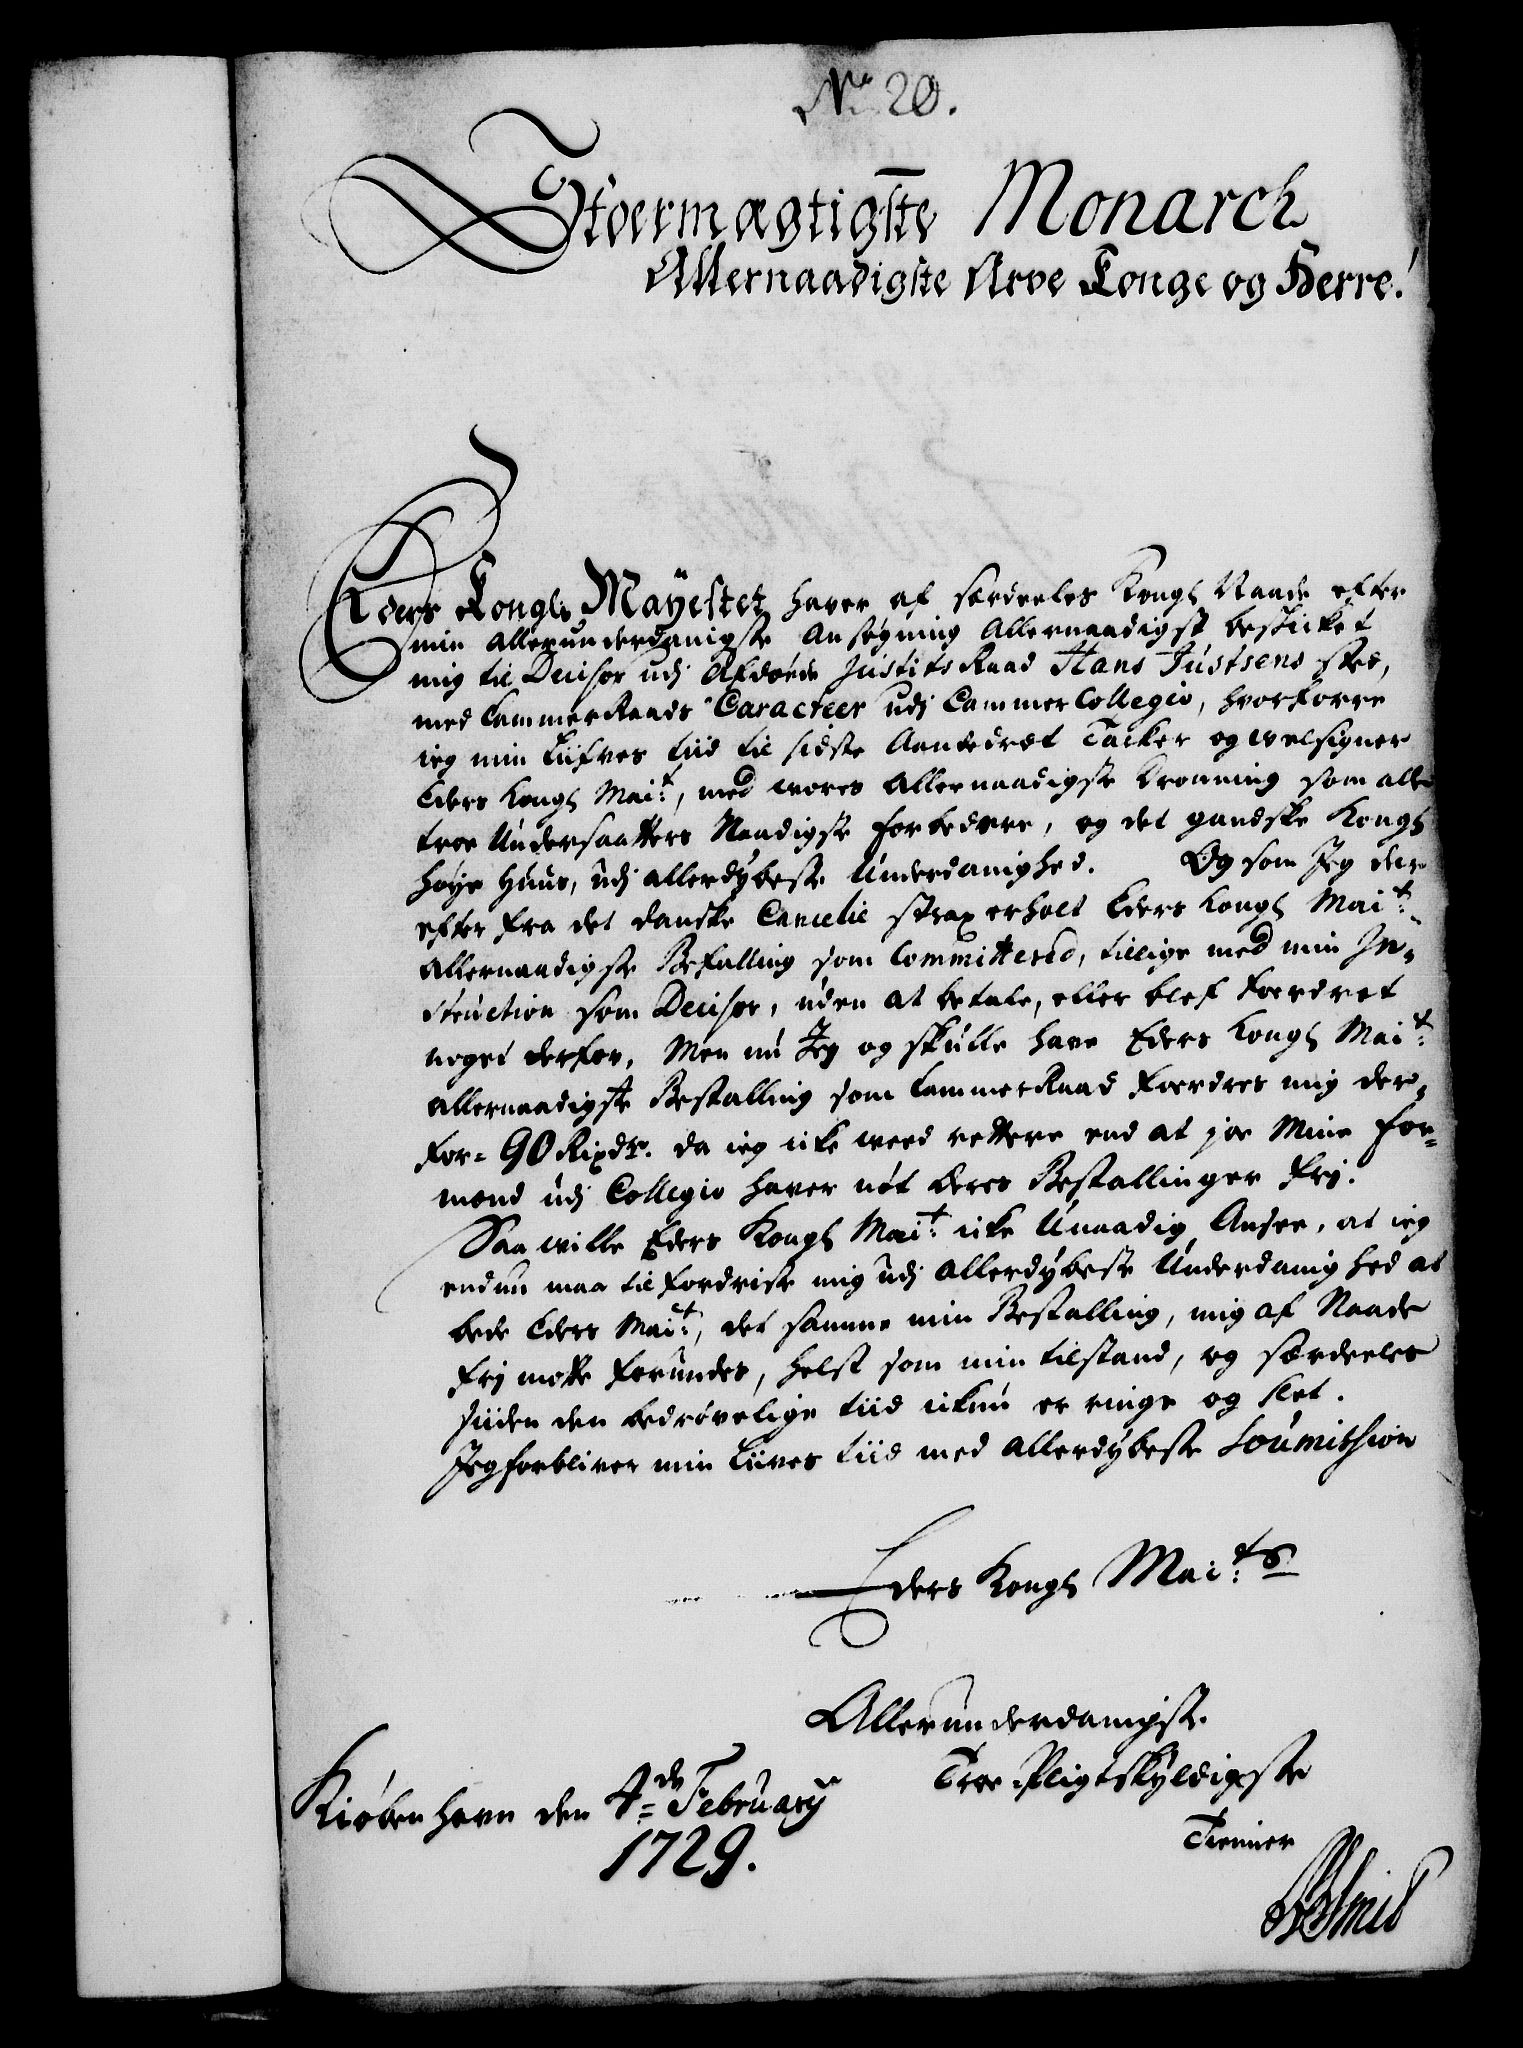 No 20.
Stoermægtigste Monarch
Allernaadigste Arve Konge og Herre!
Eders Kongl. Mayestet haver af særdeeles Kongl Naade efter
min allerunderdanigste Ansøgning Allernaadigst beskicket
mig til Decisor udj Afdøede Justits Raad Hans Justsens sted,
med CammerRaads Caracteer udj Cammer Collegio, hvorforre
ieg min Liifves tiid til sidste Aandedræt Tacker og welsigner
Eders Kongl Mait, med wores Allernaadigste Dronning som alle
troe Undersaatters Naadigste forbedere, og det gandske Kongl
høye Huus, udj allerdybeste Underdanighed. Og som Jeg der-
efter fra det danske Cancelie strax erholt Eders Kongl Mait:
Allernaadigste Befalling som Committered, tillige med min In-
struction som Decisor, uden at betale, eller blef fordret
noget derfor, Men nu Jeg og skulle have Eders Kongl Mait:
allernaadigste Bestalling som CammerRaad fordres mig der-
for= 90 Rixdr. da ieg icke weed rettere end at joe Mine for=
mænd udj Collegio haver nøt deres Bestallinger frj.
Saa wille Eders Kongl Mait: icke Unaadig Ansee, at ieg
endnu maa tilfordriste mig udj allerdybeste Underdanighed at
bede Eders Mait:, det samme min Bestalling, mig af Naade
frj motte forundes, helst som min tilstand, og særdeeles
siiden den bedrøvelige tiid ickun er ringe og slet.
Jeg forbliver min Liives tiid med allerdybeste Soumission
Eders Kongl Mai:ts
Allerunderdanigste
Troe Pligtskyldigste
Kiøbenhavn den 4de February
Tienner
1729.
Smid